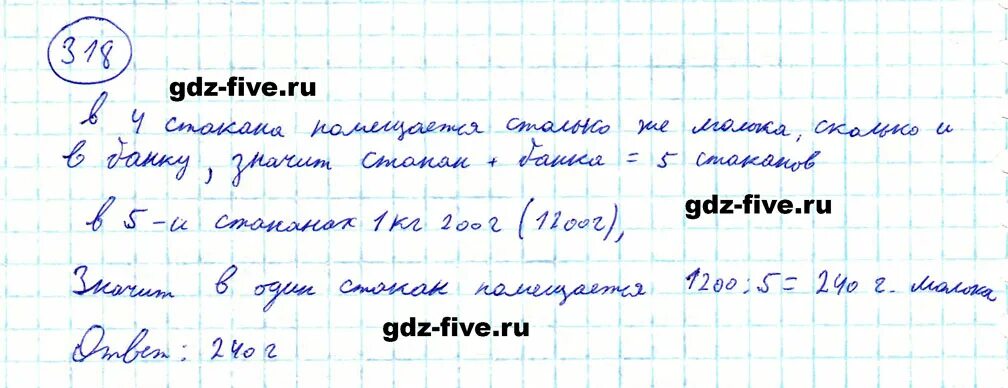 318
gdz-five.ru
в 4 стакана помещается столько же молока, сколько и
в банку, значит стакан + банка = 5 стаканов
gdz-five.ru
в 5-и стаканах 1кг 200г (1200г),
Значит в один стакан помещается 1200:5= 240 г. молока
gdz-five.ru
Ответ: 240г